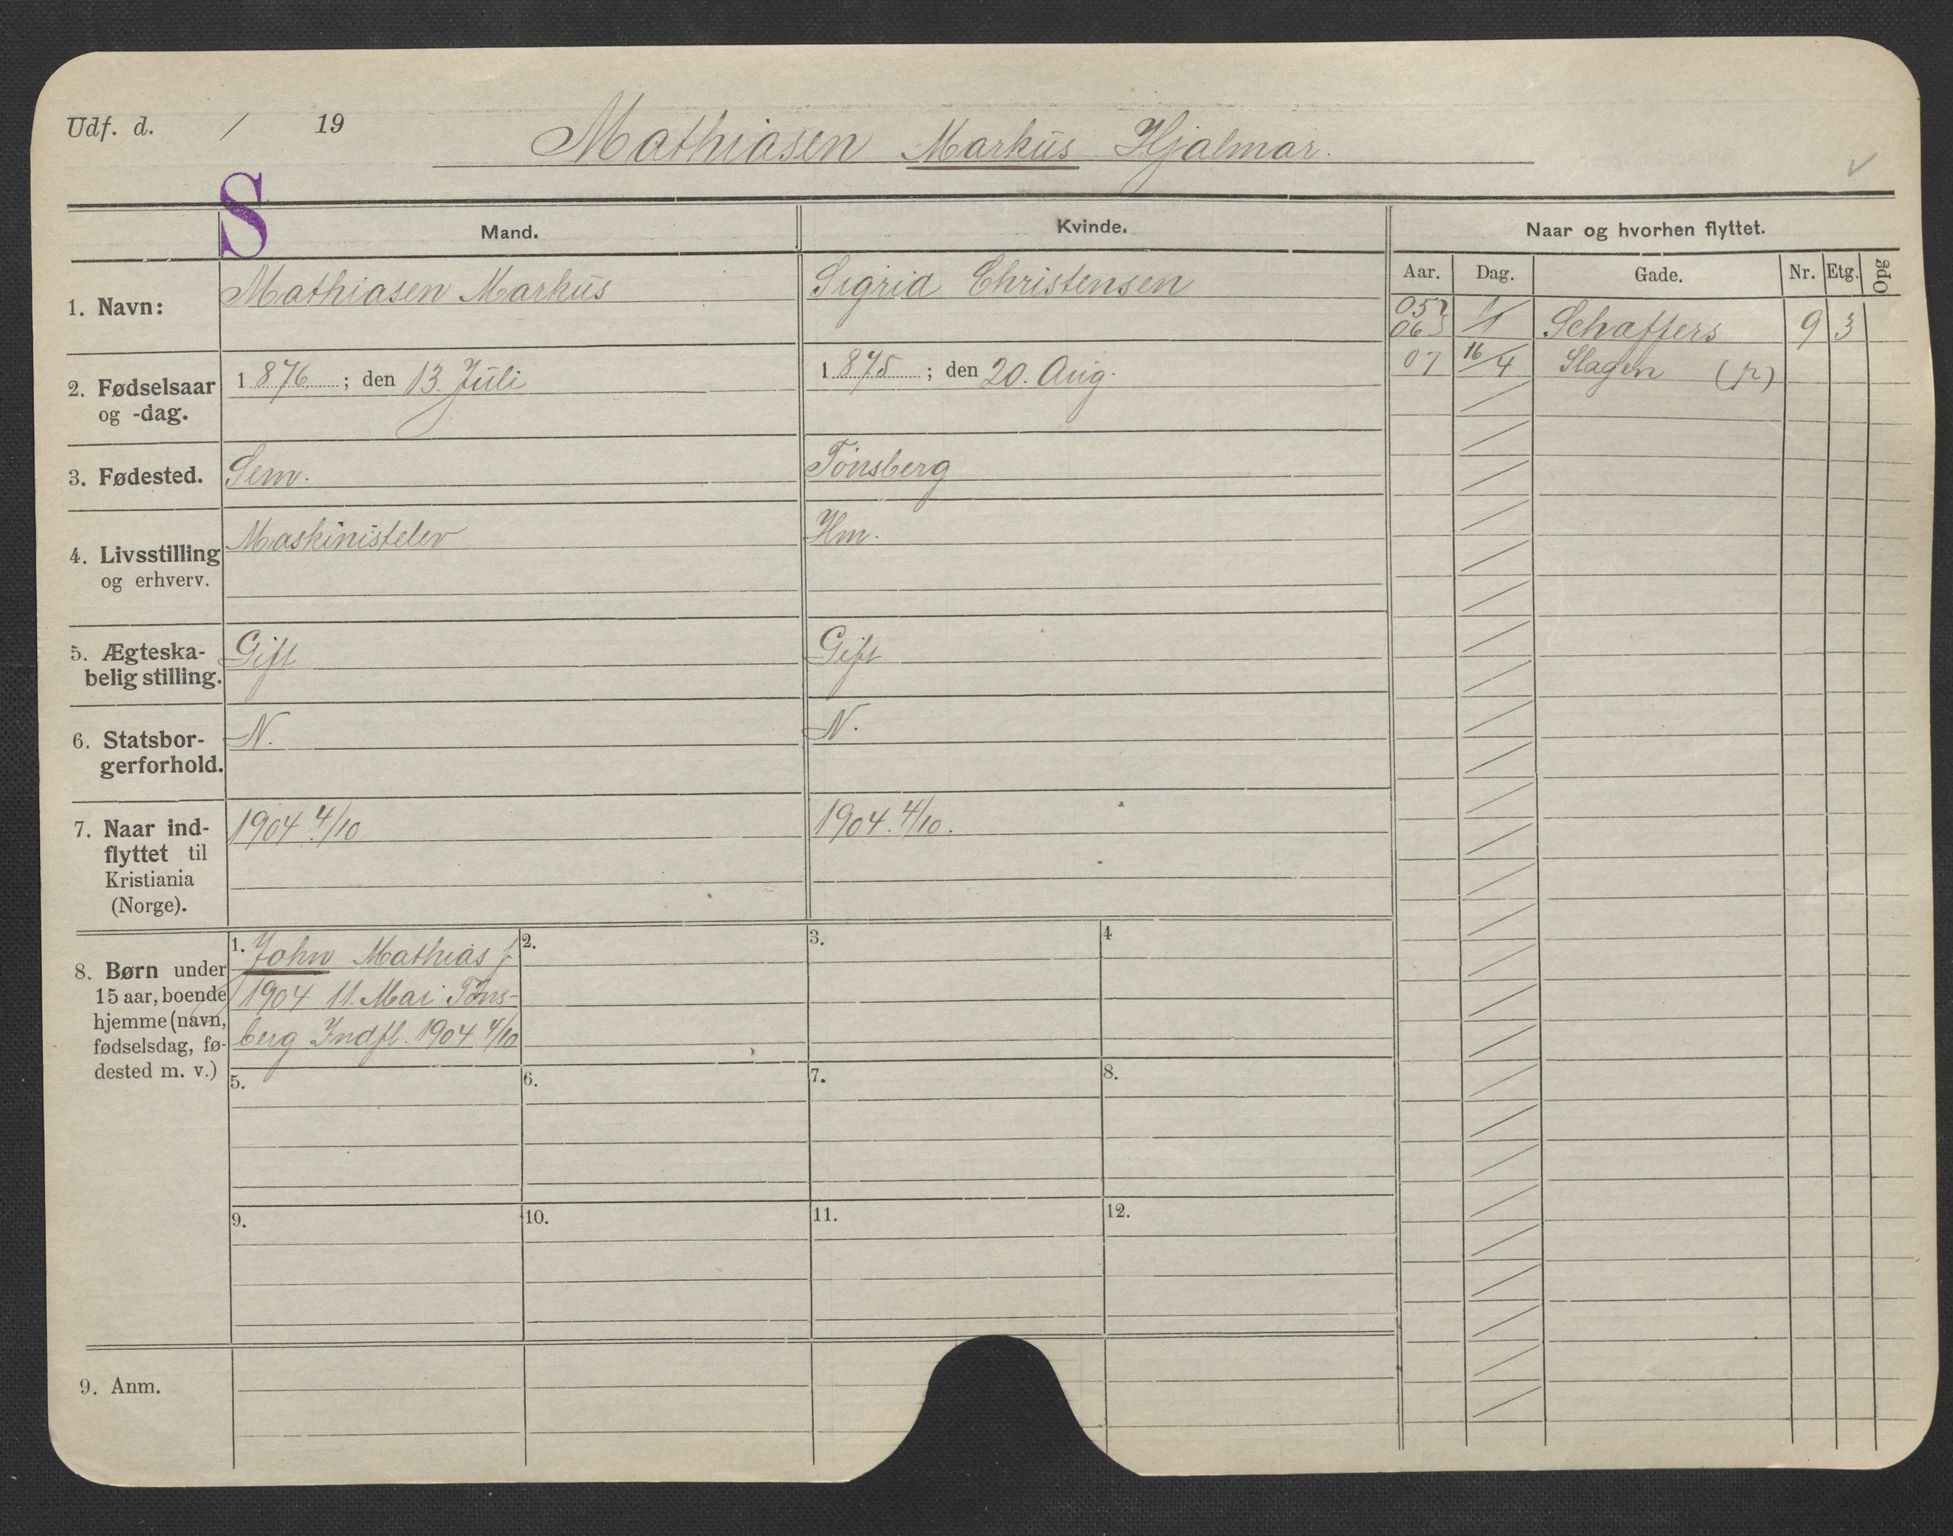 Udf. d. / 19
Mathiasen Markus Hjalmar.
S
Mand.
Kvinde.
Naar og hvorhen flyttet.
Aar. Dag. Gade. Nr. Etg. Opg
1. Navn:
Mathiasen Markus
Sigrid Christensen
05
06 1/1 Schaffers 9 3
07 16/4 Slagen (p)
2. Fødselsaar
og -dag.
1876; den 13. Juli
1875; den 20. Aug.
3. Fødested.
Sem.
Tönsberg
4. Livsstilling
og erhverv.
Maskinistelev
Hm.
5. Ægteska-
belig stilling.
Gift
Gift
6. Statsbor-
gerforhold.
N.
N.
7. Naar ind-
flyttet til
Kristiania
(Norge).
1904. 4/10
1904. 4/10.
8. Børn under
15 aar, boende
hjemme (navn,
fødselsdag, fø-
dested m. v.)
1. John Mathias f
1904 11. Mai Töns-
berg Indfl. 1904 4/10
2.
3.
4
5.
6.
7.
8.
9.
10.
11.
12.
9. Anm.